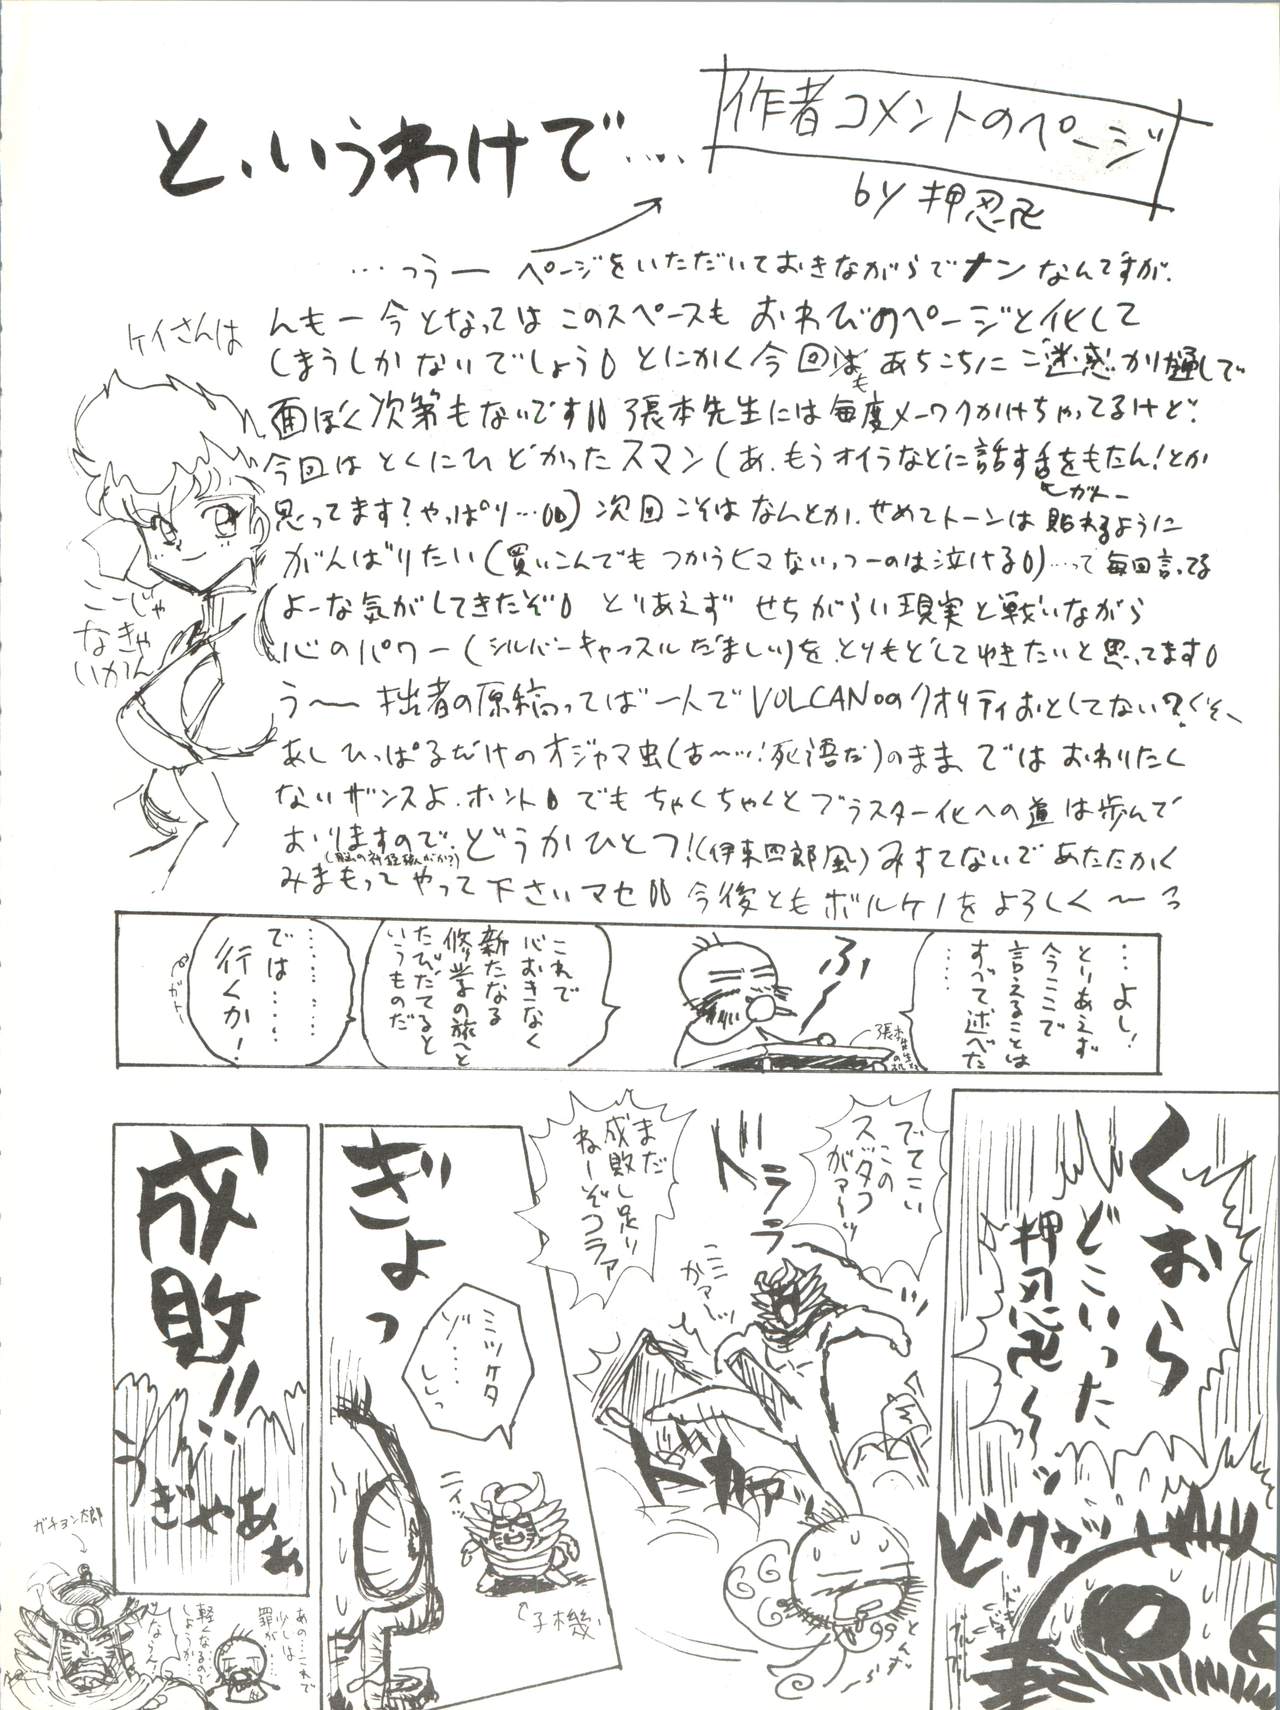 と、いうわけで‥‥
作者コメントのページ
by 押忍
…つうー ページをいただいておきながらでナンなんですが、
んもー今となっては このスペースも おわびのページと化して
しまうしかないでしょう とにかく今回は あちこちに ご迷惑かけ通しで
も
面ぼく次第もないです 張本先生には毎度メーワクかけちゃってるけど
今回は とくにひどかったスマン(あ、もうオイラなどに話す舌をもたん!とか
思ってます?やっぱり…)次回こそは なんとか、せめてトーンは 貼れるように
がんばりたい(買いこんでも つかうヒマないっつーのは泣ける)…って 毎回言ってる
よーな気がしてきたぞ とりあえず せちがらい現実と戦いながら
心のパワー(シルバーキャッスルだましい)を、とりもどしてゆきたいと思ってます
う〜 拙者の原稿ってば一人でVOLCANOのクオリティおとしてない?くそ、
あしひっぱるだけのオジャマ虫(古〜ッ!死語だ)のまま、では おわりたく
ないザンスよ、ホント でも ちゃくちゃくと ブラスター化への道は歩んで
おりますので、どうかひとつ!(伊東四郎風)みすてないで あたたかく
みまもって やって 下さいマセ 今後とも ボルケノを よろしく〜っ
ケイさんは
こーじゃ
なきゃ
いかん
…よし!
とりあえず
今ここで
言えることは
すべて述べた
‥‥
ふ
張本先生
これで
心おきなく
新たなる
修学の旅へと
たびだてると
いうものだ
‥‥‥
では‥‥
‥‥‥
行くか!
くおら
どこいった
押忍
〜ッ
ビクゥッ
でてこい
この
スダコ
がァーッ
ドララララ
まだ
成敗し足り
ねーぞコラァ
ドカァァ
ぎょっ
ミツケタ
ゾ‥‥
ニイッ
子機
成敗!!
うぎゃあぁぁ
ガチョン太郎
ならん
あの…これで
少しは
罪が……
軽くなるので
しょうか…